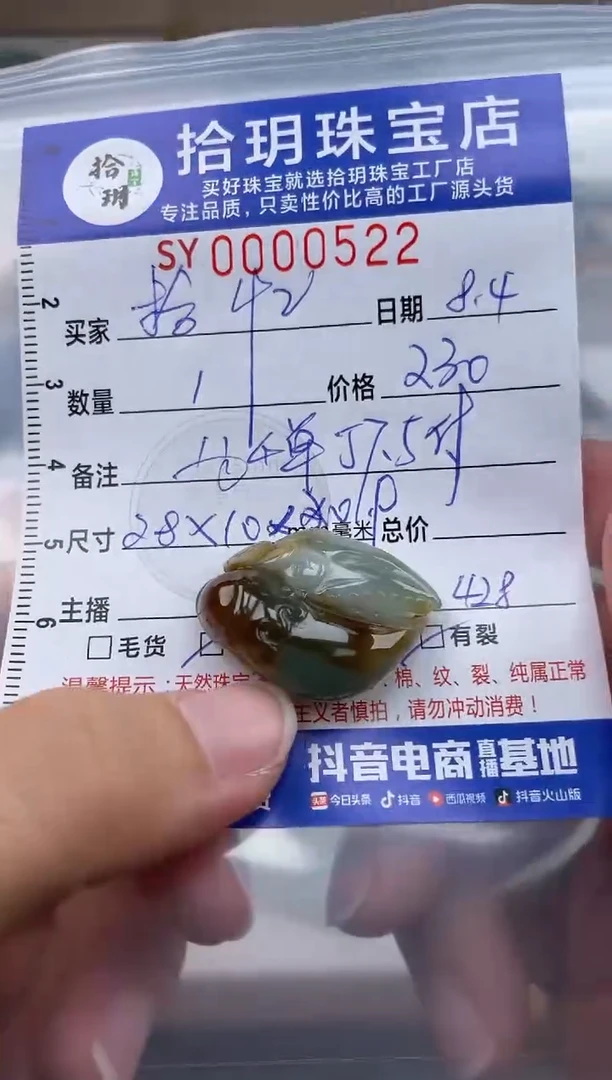 拾玥
拾玥珠宝店
买好珠宝就选拾玥珠宝工厂店
专注品质，只卖性价比高的工厂源头货
SY0000522
买家 拾42 日期 8.4
数量 1 价格 230
备注 单 57.5付
尺寸 28×10× 毫米 总价
主播 428
毛货 有裂
温馨提示：天然珠宝 棉、纹、裂、纯属正常
主义者慎拍，请勿冲动消费！
抖音电商直播基地
头条 今日头条 抖音 西瓜视频 抖音火山版
2
3
4
5
6